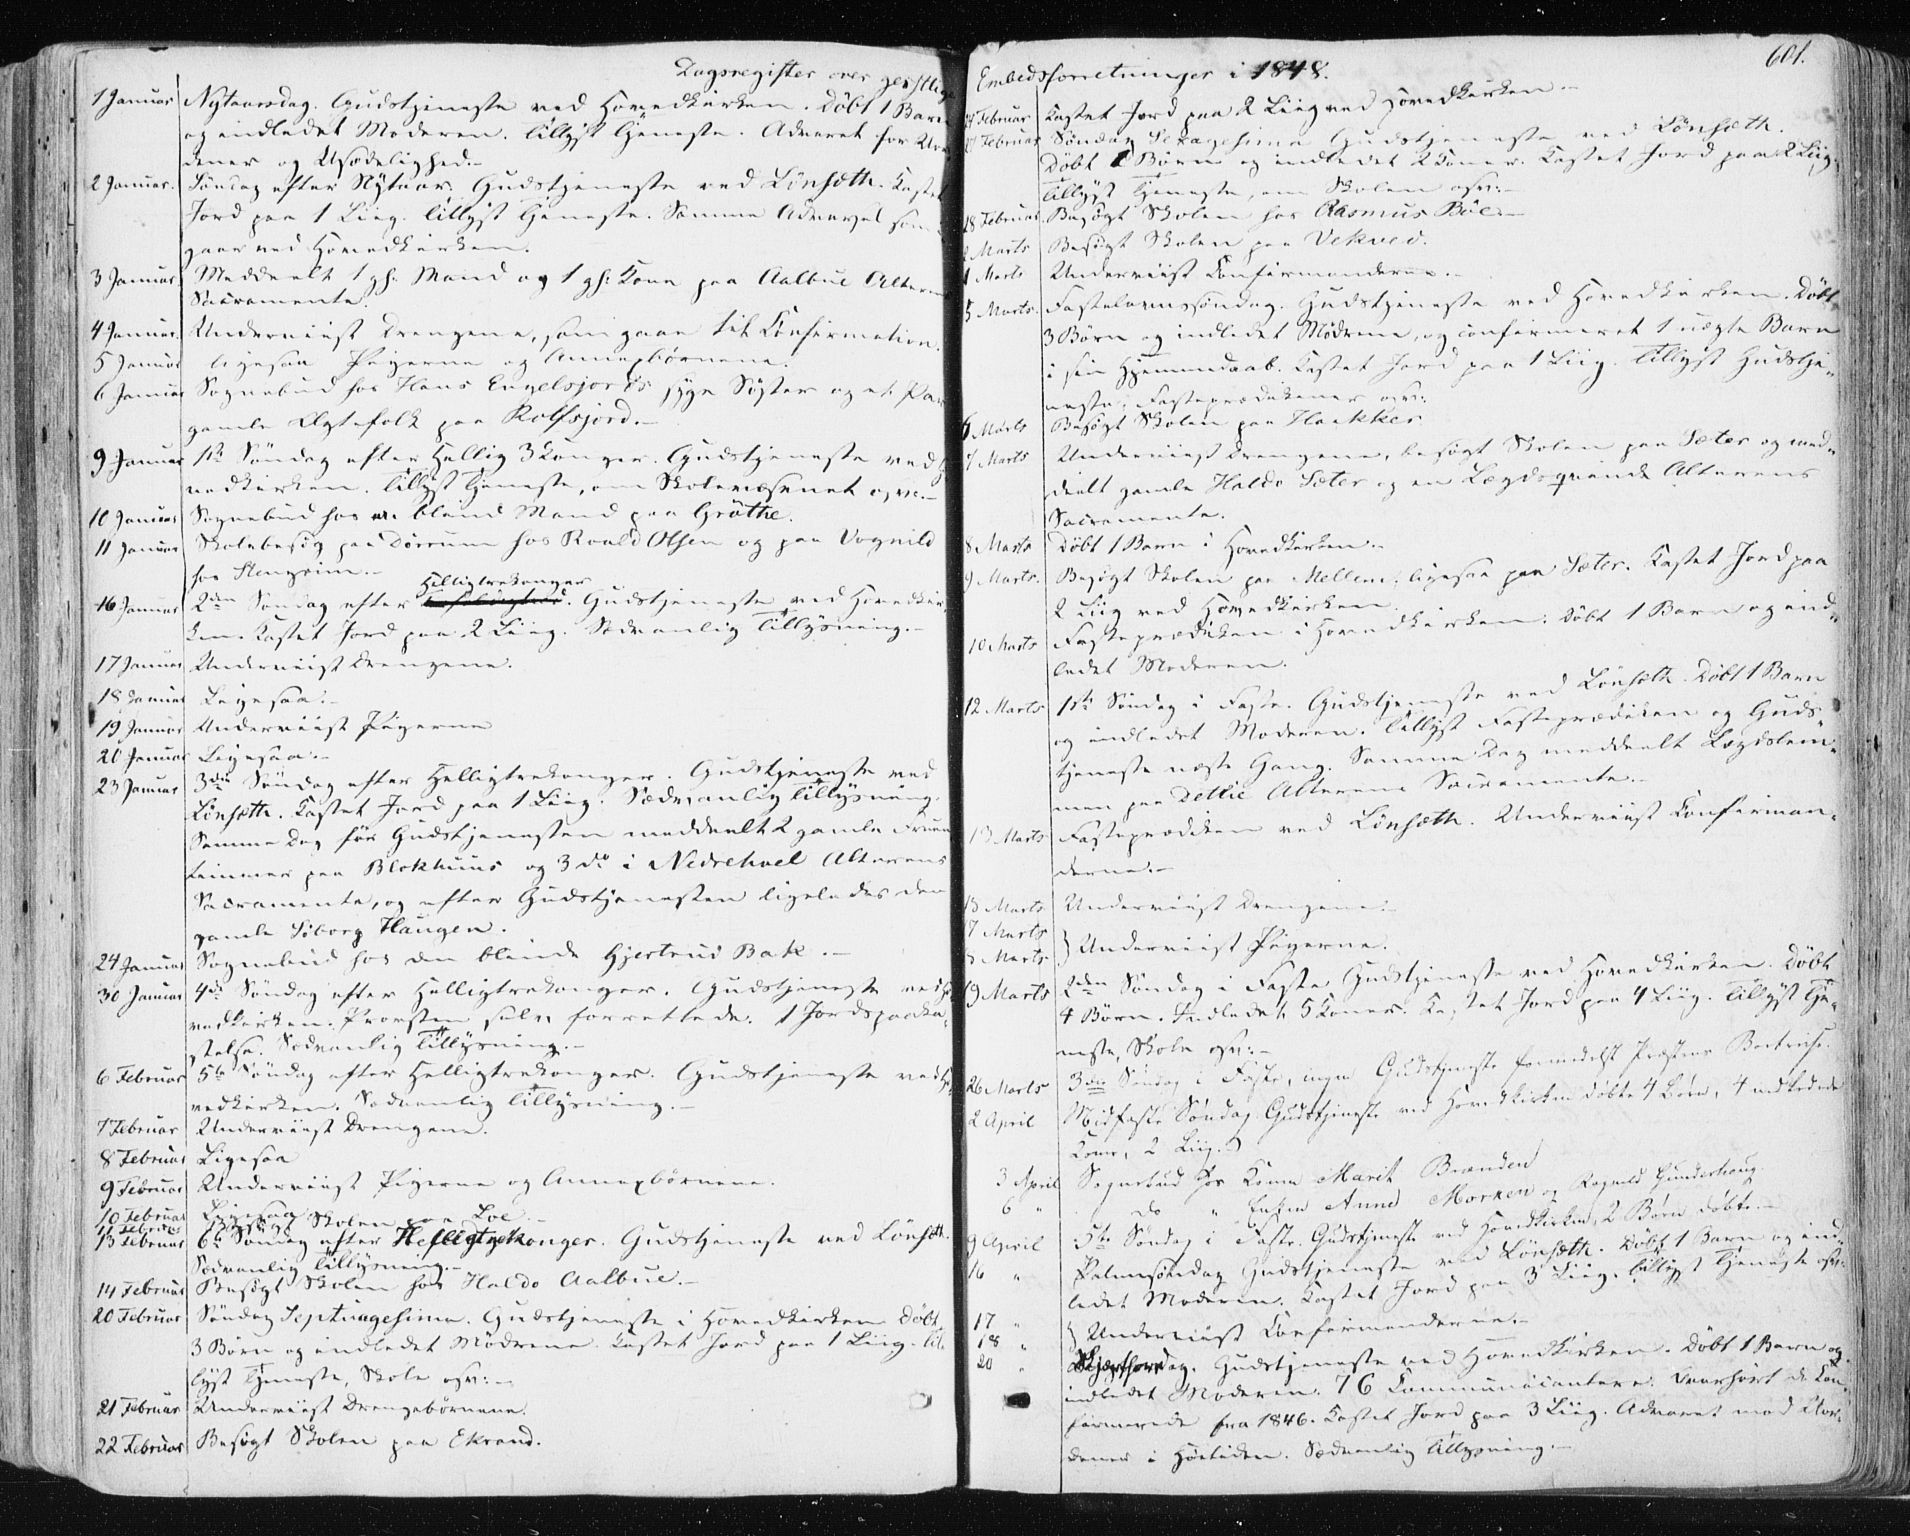 Dagsregister over geistlige
1 Januar Nytaarsdag. Gudstjeneste ved Hovedkirken. Døbt 1 Barn
og indledet Moderen. Tillyst Tjeneste. Advaret for Uor-
dener og Usædelighed.-
2 Januar. Søndag efter Nytaar. Gudstjeneste ved Lönsæth. Kastet
Jord paa 1 Liig. Tillyst Tjeneste. Samme Advarsel som i
gaar ved Hovedkirken.
3 Januar Meddeelt 1 gl. Mand og 1 gl. Kone paa Aalbue Alterens
Sacramente.
4 Januar. Underviist Drengene, som gaae til Confirmation.
5 Januar ligesaa Pigerne og Annexbørnene.
6 Januar Sognebud hos Hans Engelsjords syge Söster og et Par
gamle Ægtefolk paa Rolfsjord.-
9 Januar 1ste Søndag efter Hellig 3 Konger. Gudstjeneste ved Ho-
vedkirken. Tillyst Tjeneste, om Skolevæsenet osv.-
10 Januar Sognebud hos en blind Mand paa Gröthe.
11 Januar Skolebesøg paa Dörrum hos Roald Olsen og paa Vognild
hos Stengrim.-
Helligtrekonger
16 Januar 2den Søndag efter . Gudstjeneste ved Hovedkir-
ken. Kastet Jord paa 2 Liig. Sædvanlig Tillysning.-
17 Januar Underviist Drengene.
18 Januar Ligesaa.-
19 Januar Underviist Pigerne
20 Januar Ligesaa.-
23 Januar 3die Søndag efter Helligtrekonger. Gudstjeneste ved
Lönsæth. Kastet Jord paa 1 Liig. Sædvanlig Tillysning.
Samme Dag før Gudstjenesten meddeelt 2 gamle Fruen-
timmer paa Blokhuus og 3 do i Nedrehoel Alterens
Sacramente, og efter Gudstjenesten ligeledes den
gamle Siborg Haugen.
24 Januar Sognebud hos den blinde Hjertrud Bak.-
30 Januar 4de Søndag efter Helligtrekonger. Gudstjeneste ved Ho-
vedkirken. Provsten selv forrettede. 1 Jordspaaka-
stelse. Sædvanlig Tillysning.-
6 Februar 5te Søndag efter Helligtrekonger. Gudstjeneste ved Ho-
vedkirken. Sædvanlig Tillysning.-
7 Februar Underviist Drengene.
8 Februar Ligesaa
9 Februar Underviist Pigerne og Annexbørnene.
10 Februar Ligesaa
11 Februar Besøgt Skolen paa Loe.-
13 Februar 6te Søndag efter Helligtrekonger. Gudstjeneste ved Lönsæth.
Sædvanlig Tillysning.-
14 Februar Besøgt Skolen hos Haldo Aalbue.-
20 Februar Søndag Septuagesima. Gudstjeneste i Hovedkirken. Døbt
3 Børn og indledet Mødrene. Kastet Jord paa 1 Liig. Til-
lyst Tjeneste, Skole osv:-
21 Februar Underviist Drengebørnene.
22 Februar Besøgt Skolen paa Ekrand.
601.
Embedsforretninger i 1848.
24 Februar Kastet Jord paa 2 Liig ved Hovedkirken.-
27 Februar Søndag Sexagesima Gudstjeneste ved Lönsæth.
Døbt 2 Børn og indledet 2 Koner. Kastet Jord paa 2 Liig.
Tillyst Tjeneste, om Skolen osv:-
28 Februar Besøgt Skolen hos Rasmus Böe.-
2 Marts Besøgt Skolen paa Vekved.
4 Marts Underviist Confirmanderne.-
5 Marts. Fastelavnssøndag. Gudstjeneste ved Hovedkirken. Døbt
3 Børn og indledet Mødrene, og confirmeret 1 uægte Barn
i sin Hjemmedaab. Kastet Jord paa 1 Liig. Tillyst Gudstje-
neste, Fasteprædikener osv:
6 Marts Besøgt Skolen paa Haakker
7 Marts Underviist Drengene, besøgt Skolen paa Sæter og med-
deelt gamle Haldo Sæter og en Lægdsqvinde Alterens
Sacramente.
8 Marts Døbt 1 Barn i Hovedkirken.-
9 Marts. Besøgt Skolen paa Mellem, ligesaa paa Sæter. Kastet Jord paa
2 Liig ved Hovedkirken.
10 Marts Fasteprædiken i Hovedkirken. Døbt 1 Barn og ind-
ledet Moderen.
12 Marts 1ste Søndag i Faste. Gudstjeneste ved Lönsæth. Døbt 1 Barn
og indledet Moderen. Tillyst Fasteprædiken og Guds-
tjeneste næste Gang. Samme Dag meddeelt Lægdslem-
men paa Dettlie Alterens Sacramente.-
13 Marts Fasteprædiken ved Lönsæth. Underviist Confirman-
derne.-
15 Marts Underviist Drengene.-
17 Marts
18 Marts } Underviist Pigerne.
19 Marts 2den Søndag i Faste Gudstjeneste ved Hovedkirken. Døbt
4 Børn. Indledet 5 Koner. Kastet Jord paa 4 Liig. Tillyst Tje-
neste, Skole osv:-
26 Marts 3die Søndag i Faste, ingen Gudstjeneste formedelst Præstens Bortreise.
2 April Midfaste Søndag. Gudstjeneste ved Hovedkirken døbte 4 Børn, 4 indledede
Koner, 2 Liig.
3 April Sognebud hos Konen Marit Branden
6 " do " Enken Anne Morken og Ragnild Gunderhaug.
9 April 5te Søndag i Faste. Gudstjeneste ved Hovedkirken, 2 Børn døbte.-
16 " Palmesøndag Gudstjeneste ved Lönsæth. Døbt 1 Barn og ind-
ledet Moderen. Kastet Jord paa 3 Liig. Tillyst Tjeneste osv:
17 "
18 " } Underviist Confirmanderne.-
20 " Skjærthorsdag. Gudstjeneste ved Hovedkirken. Døbt 1 Barn og
indledet Moderen. 76 Communicantere. Overhørt de Con-
firmerede fra 1846. Kastet Jord paa 3 Liig. Advaret mod Uor-
dener i Høitiden. Sædvanlig Tillysning.-